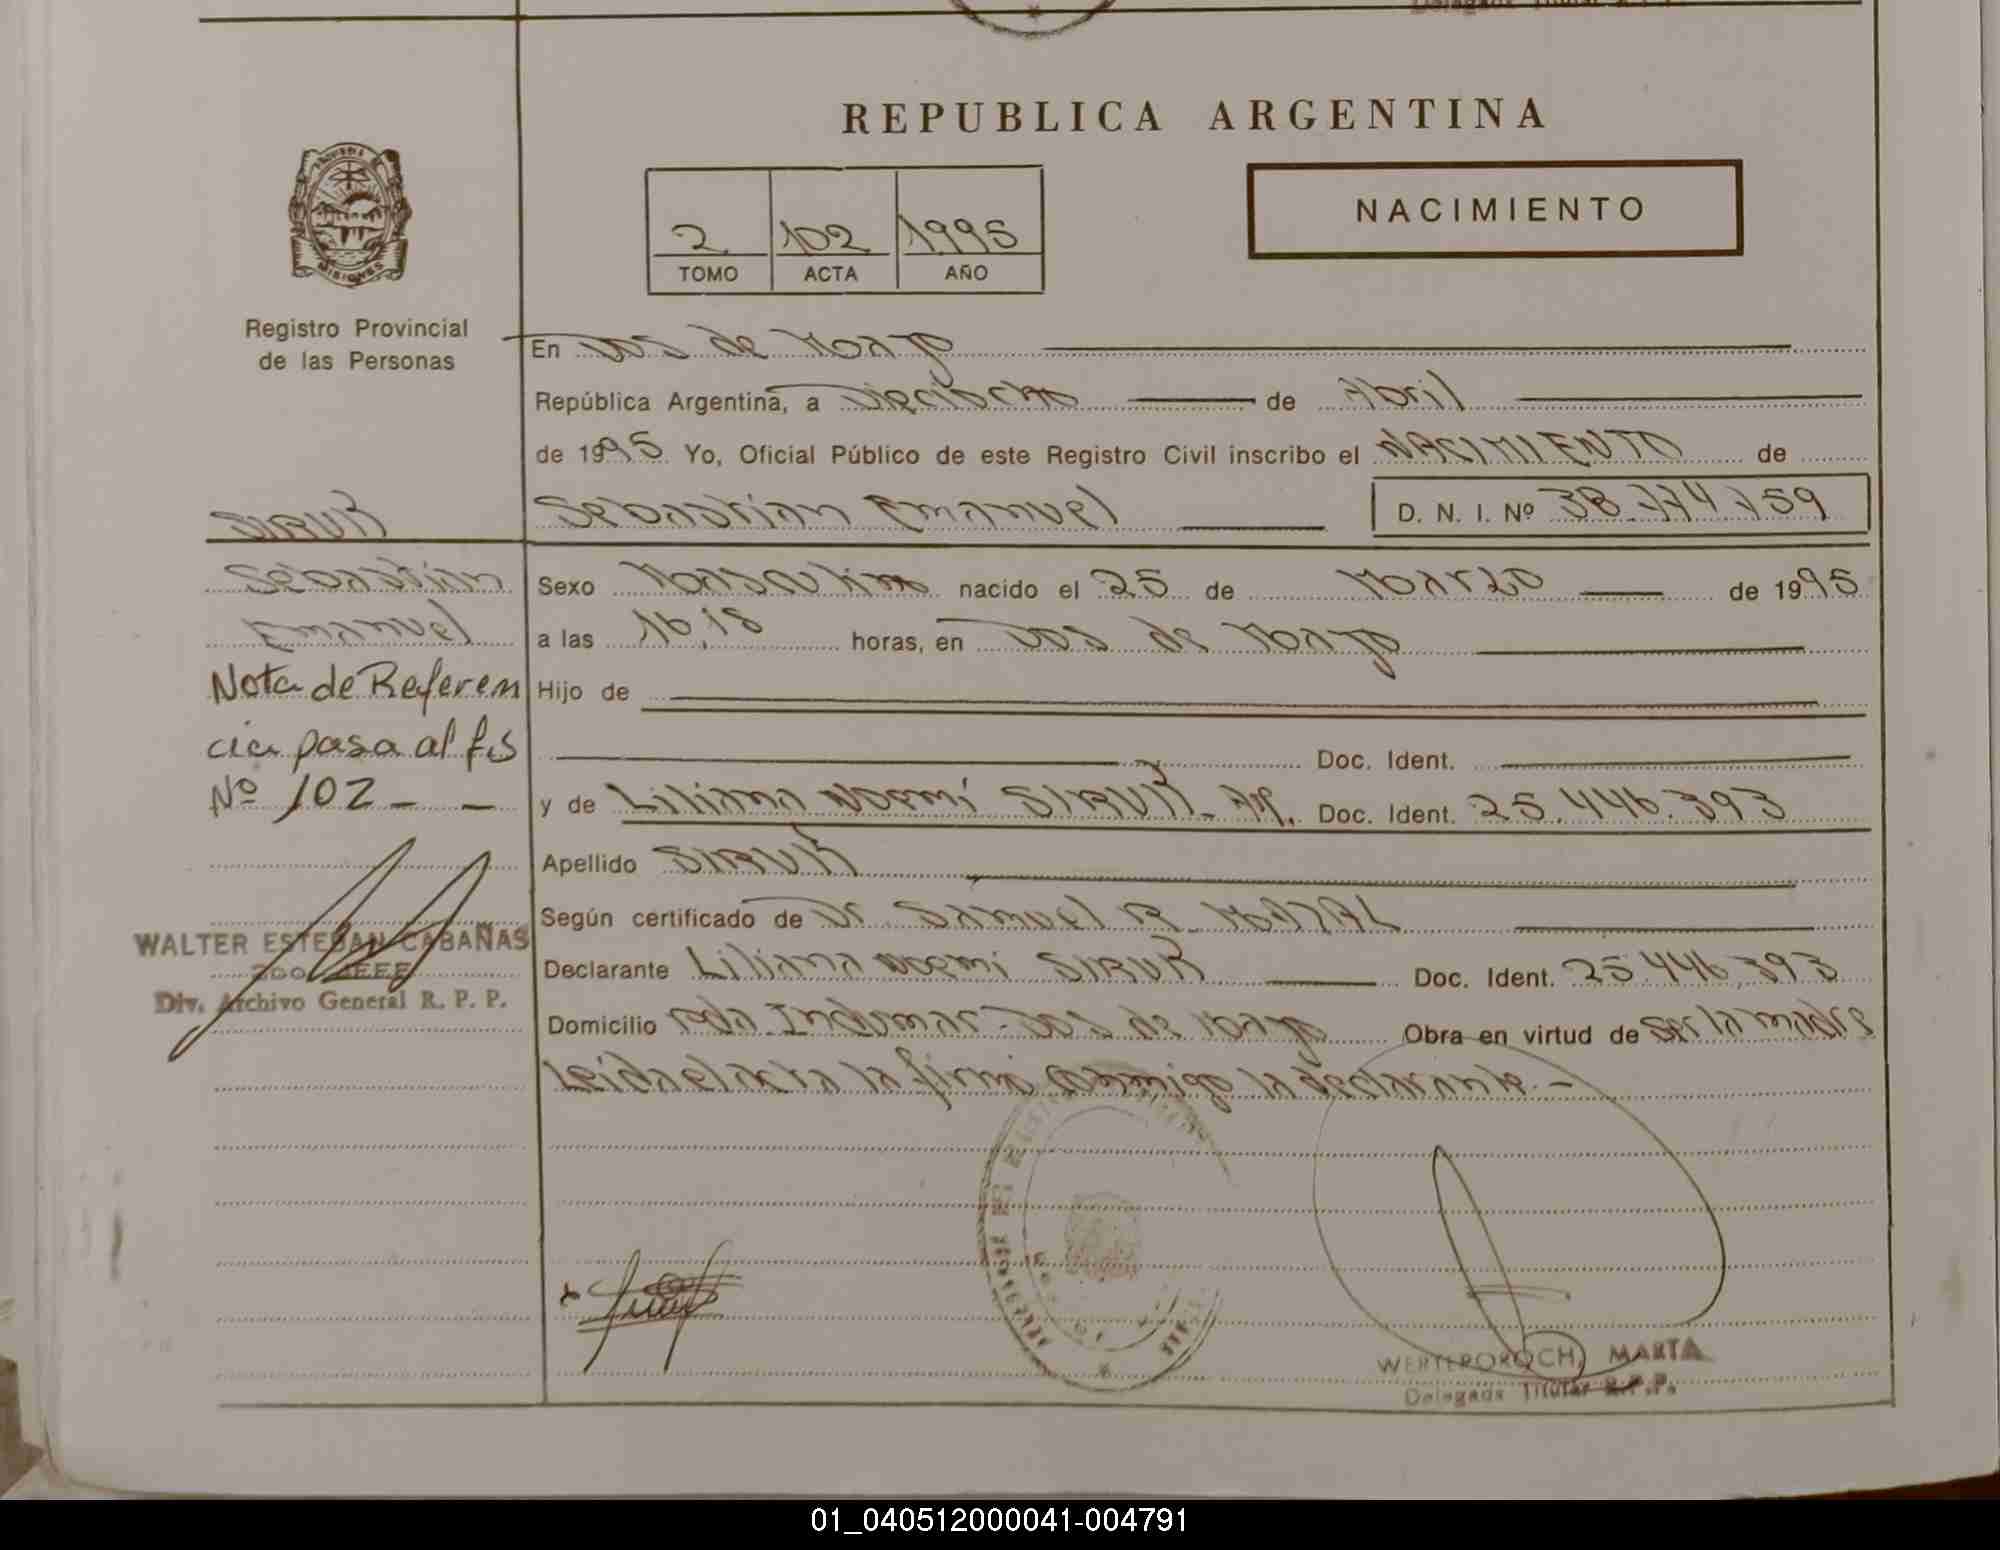 REPUBLICA ARGENTINA
2 102 1995
TOMO ACTA AÑO
NACIMIENTO
MISIONES
Registro Provincial
de las Personas
En Dos de Mayo
República Argentina, a Dieciocho de Abril
de 1995 Yo, Oficial Público de este Registro Civil inscribo el NACIMIENTO de
Sebastian Emanuel D. N. I. Nº 38.774.759
Sebastian
Emanuel
Nota de Referen
cia pasa al fis
Nº 102 - -
WALTER ESTEBAN CABAÑAS
JEFE
Div. Archivo General R. P. P.
Sexo Masculino nacido el 25 de Marzo de 1995
a las 16,15 horas, en Dos de Mayo
Hijo de
Doc. Ident.
y de Liliana Noemi Doc. Ident. 25.446.393
Apellido
Según certificado de Dr. Samuel
Declarante Liliana Noemi Doc. Ident. 25.446.393
Domicilio Dos de Mayo Obra en virtud de ser la madre
Leida el acta la firma conmigo la declarante.-
WERTEROROCH, MARTA
Delegada Titular R.P.P.
01_040512000041-004791